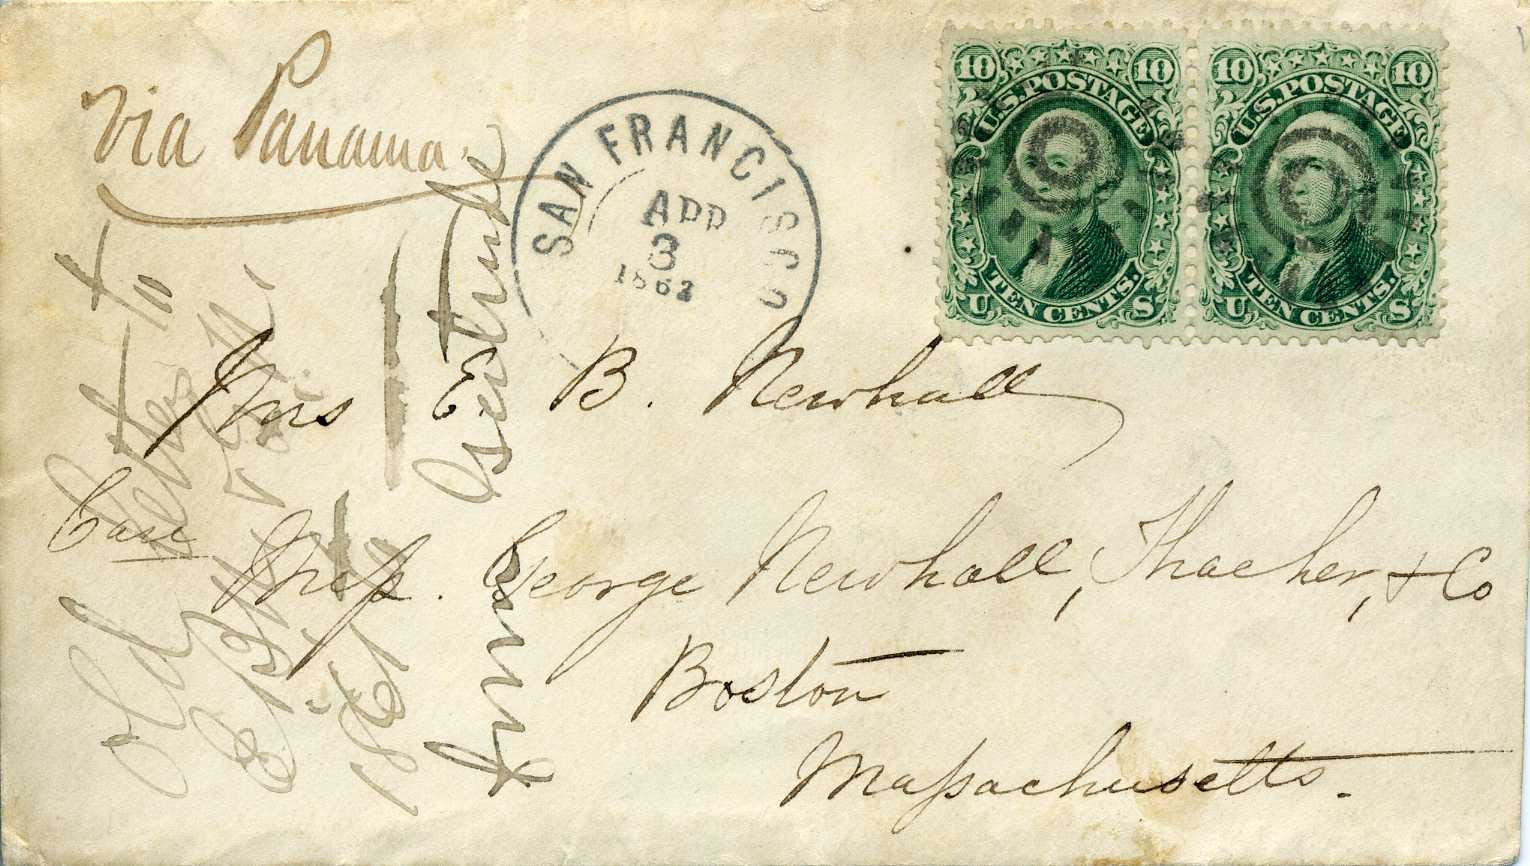 via Panama
SAN FRANCISCO
APR
3
1862
10 U.S. POSTAGE 10
TEN CENTS.
U S
10 U.S. POSTAGE 10
TEN CENTS.
U S
Mrs E. B. Newhall
Care Mess. George Newhall, Thacher, & Co
Boston
Massachusetts.
Old letter to
E B N
186
from